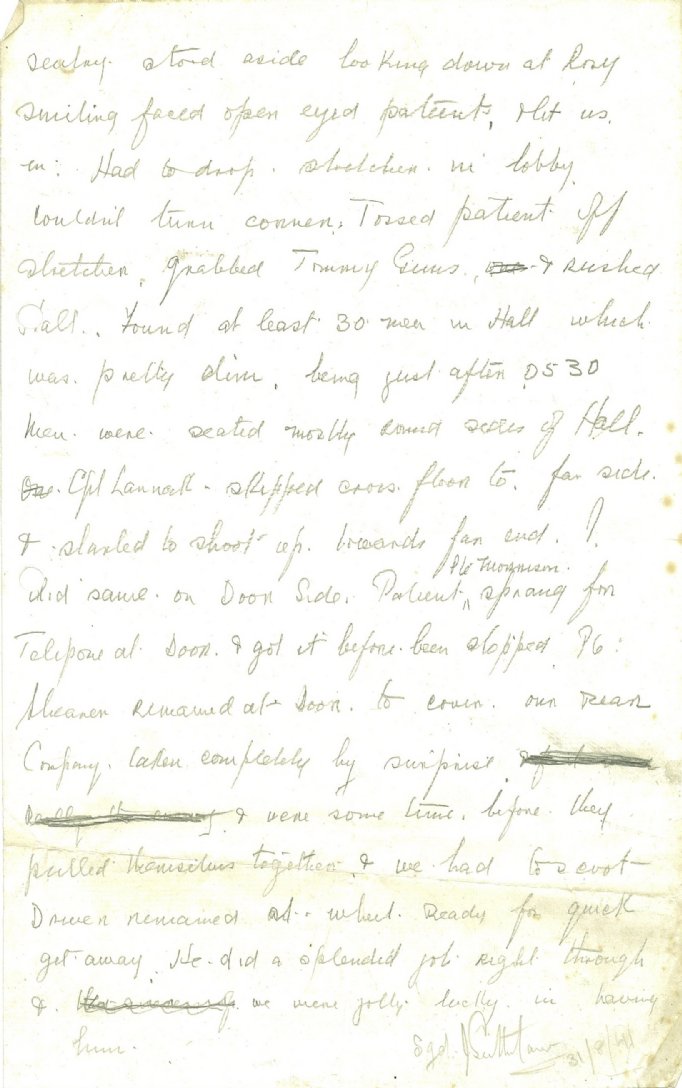 sentry stood aside looking down at Rosy
smiling faced open eyed patients, & let us
in: Had to drop stretcher in lobby
couldn't turn corner. Tossed patient off
stretcher, grabbed Tommy Guns, & rushed
Hall. Found at least 30 men in Hall which
was pretty dim, being just after 0530
Men were seated mostly round sides of Hall.
Cpl Lannack skipped cross floor to far side
& started to shoot up towards far end. I
Pte Morrison
did same on Door Side. Patient sprang for
Telipone at Door & got it before been stopped Pte:
Shearer remained at Door to cover our rear
Company taken completely by surprise
& were some time before they
pulled themselves together & we had to scoot
Driver remained at wheel ready for quick
get away. He did a splendid job right through
& we were jolly lucky in having
him.
Sgd 31/8/41